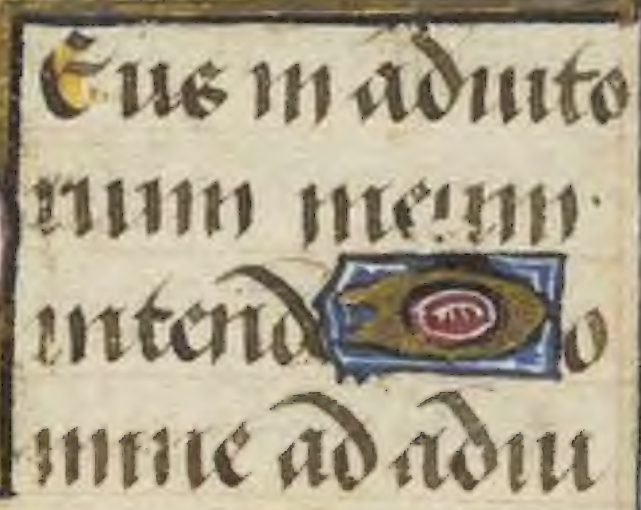 Eus in adiuto
rium meum
intend o
mine ad adiu